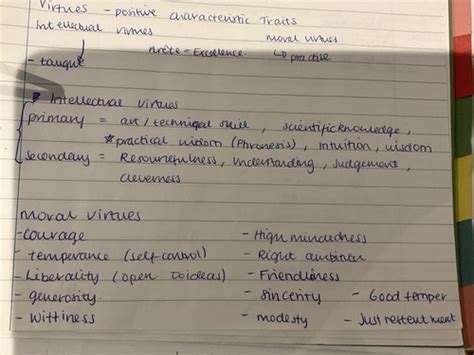 Virtues - positive characteristic Traits
Intellectual virtues
moral virtues
Arete = Excellence.
↳ practise
- taught
* Intellectual virtues
primary = art / technical skill, scientific knowledge,
*practical wisdom (Phronesis), intuition, wisdom
secondary = Resourcefulness, Understanding, Judgement,
cleverness
moral virtues
- courage
- High mindedness
- temperance (self-control)
- Right ambition
- Liberality (open to ideas)
- Friendliness
- generosity.
- sincerity - Good temper
- wittiness
- modesty - Just resentment